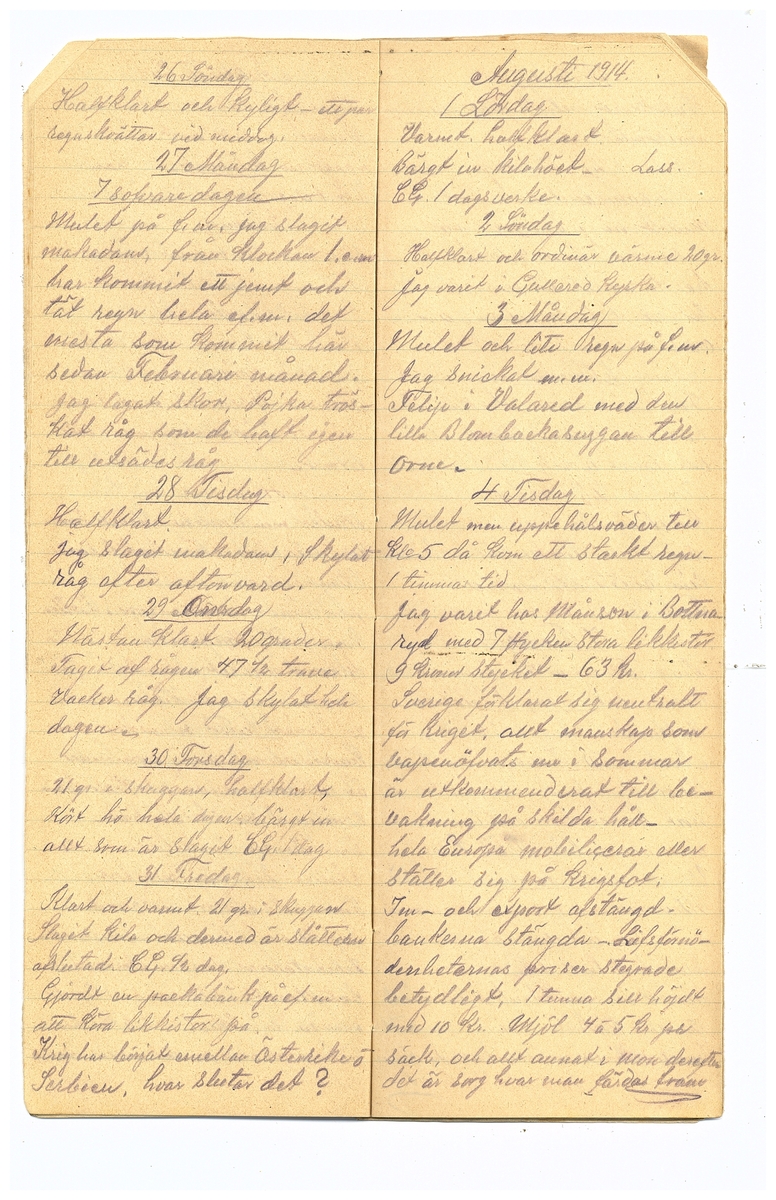 26 Söndag
Halfklart och kyligt – ett par
regnskvättar vid middag.
27 Måndag
7 sofvaredagen
Mulet på f.m. jag slagit
makadam, från klockan 1 e.m
har kommit ett jemt och
tät regn hela ef.m. det
mesta som kommit här
sedan Februari månad.
Jag lagat skor, Pojka trös-
kat råg som de haft igen
till utsädes råg
28 Tisdag
Halfklart.
jag slagit makadam, skylat
råg efter aftonvard.
29 Onsdag
Nästan klart. 20 grader.
Taget af rågen 47 1/2 trave
Vacker råg. Jag skylat hela
dagen.
30 Torsdag
21 gr. i skuggan, halfklart,
kört hö hela dagen bärgt in
allt som är slaget CG. 1 dag
31 Fredag
Klart och varmt. 21 gr. i skuggan
Slaget kila och dermed är slåttern
afslutad. CG. 1/2 dag.
Gjordt en packabänk på ef.m
att köra likkistor på.
Krig har börjat emellan Österrike o
Serbien, hvar slutar det?
Augusti 1914.
1 Lördag
Varmt. halfklart
Bärgt in kilahöet – Lass.
CG. 1 dagsverke.
2 Söndag
Halfklart och ordinär värme 20 gr.
Jag varit i Gullared kyrka.
3 Måndag
Mulet och lite regn på f.m.
Jag snickat m.m.
Felip i Valared med den
lilla Blombackasuggan till
Orne.
4 Tisdag
Mulet men uppehålsväder till
Kl. 5 då kom ett starkt regn –
1 timmas tid
Jag varit hos Månson i Bottna-
ryd med 7 stycken stora likkistor
9 Kronor stycket – 63 Kr.
Sverige förklarat sig neutralt
för kriget, allt manskap som
vapenöfvats nu i sommar
är utkommenderat till be-
vakning på skilda håll –
hela Europa mobiliserar eller
ställer sig på krigsfot.
Im- och export afstängd.
bankerna stängda – Lifsförnö-
denheternas priser stegrade
betydligt, 1 tunna sill höjdt
med 10 Kr. Mjöl 4 à 5 Kr pr
säck, och allt annat i mon derefter
det är sorg hvar man färdas fram